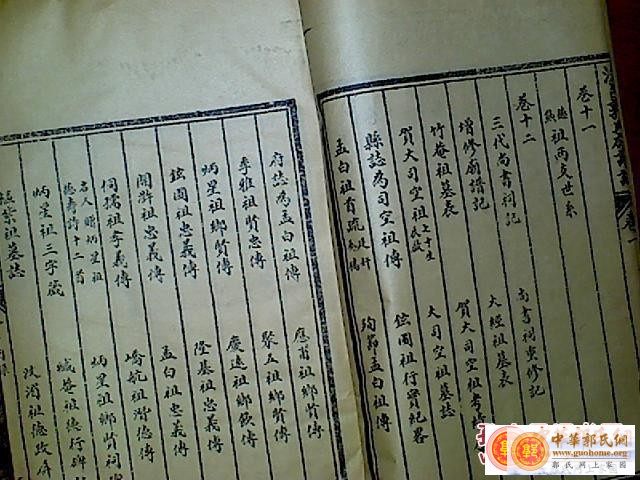 卷十一
祖兩支世系
卷十二
三代尚書祠記 尚書祠重修記
增修廟譜記 大經祖墓表
竹庵祖墓表 賀大司空祖考績
賀大司空祖七十生 大司空祖墓誌
縣誌為司空祖傳 絃圃祖行實紀畧
孟白祖首疏 殉節孟白祖傳
府誌為孟白祖傳 應甫祖鄉賢傳
季雅祖賢忠傳 聚五祖鄉賢傳
炳星祖鄉賢傳 慶遠祖鄉飲傳
絃圃祖忠義傳 隆基祖忠義傳
祖忠義傳 孟白祖忠義傳
伺孺祖孝義傳 崎航祖潛德傳
名人贈炳星祖
壽詩十二首 炳星祖鄉賢祠
炳星祖三字箴 緘菴祖德行碑
祖墓誌 汶湄祖德政屏
中華郭氏網
www.guohome.org
郭氏網上家園